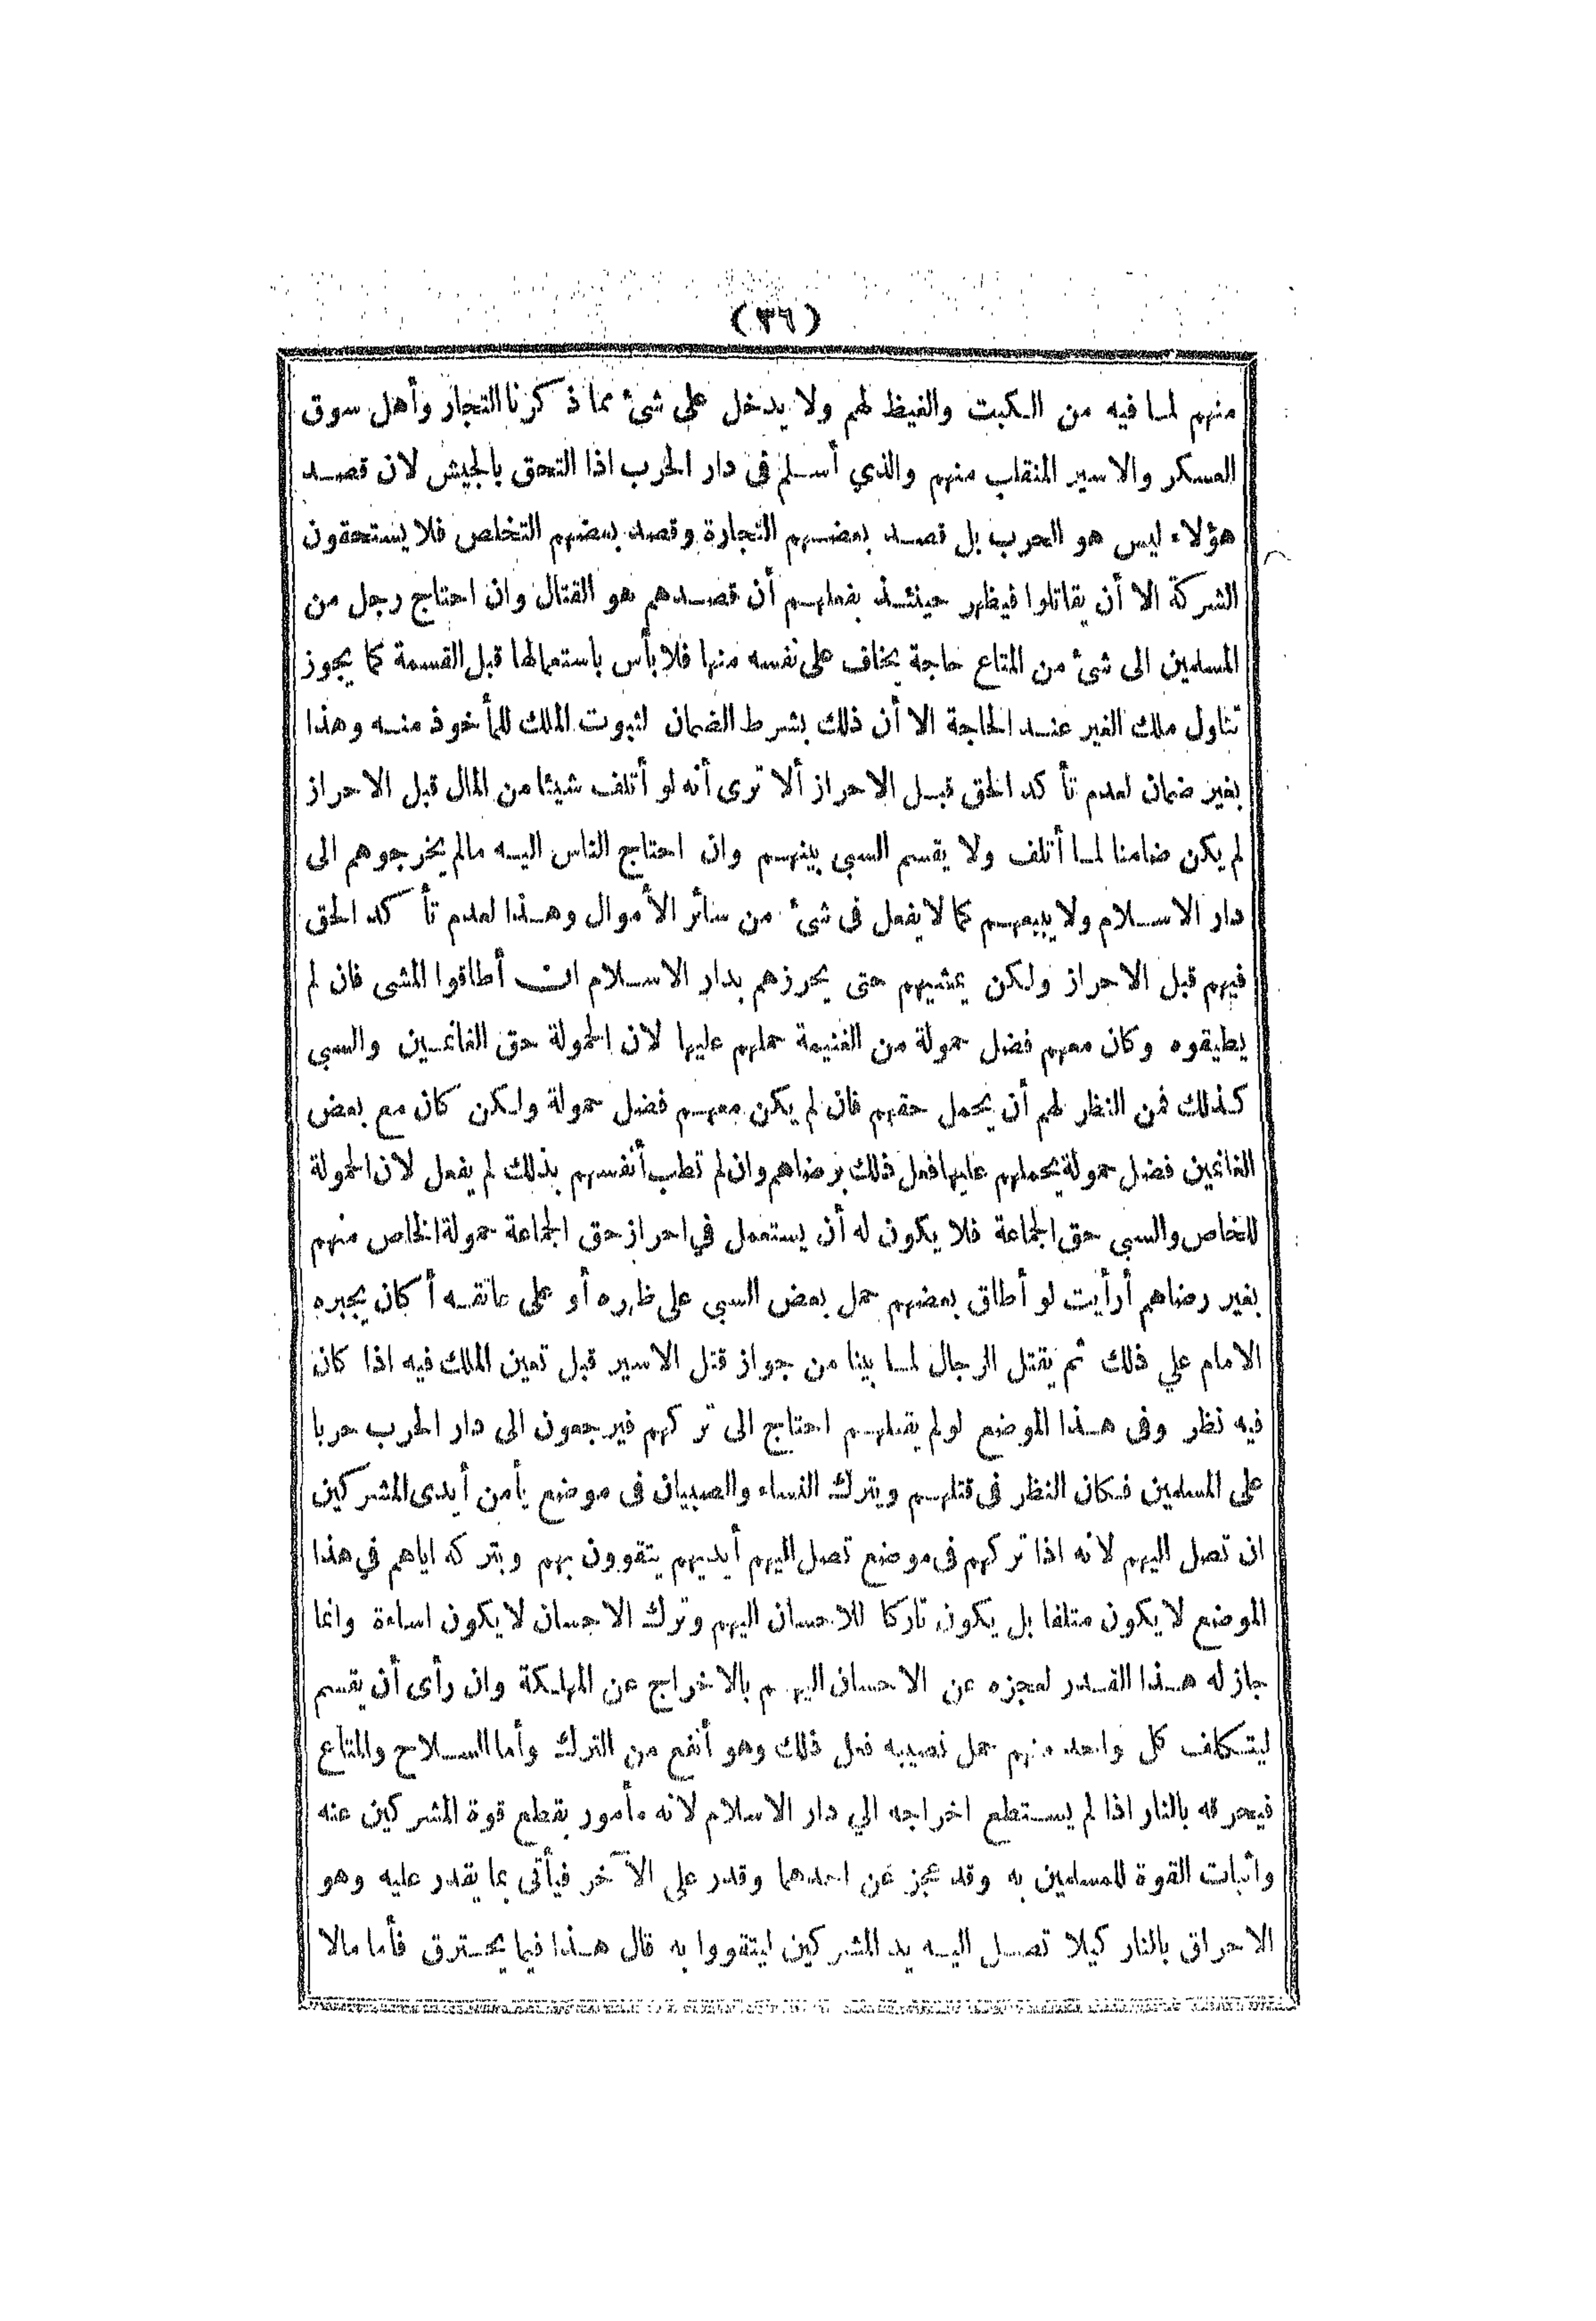 (٣٦)
منهم لما فيه من الكبت والغيظ لهم ولا يدخل على شئ مما ذكرنا التجار وأهل سوق
العسكر والاسير المنقلب منهم والذي أسلم فى دار الحرب اذا التحق بالجيش لان قصد
هؤلاء ليس هو الحرب بل قصد بعضهم التجارة وقصد بعضهم التخلص فلا يستحقون
الشركة الا أن يقاتلوا فيظهر حينئذ بفعلهم أن قصدهم هو القتال وان احتاج رجل من
المسلمين الى شئ من المتاع حاجة يخاف على نفسه منها فلا بأس باستعمالها قبل القسمة كما يجوز
تناول ملك الغير عند الحاجة الا أن ذلك بشرط الضمان لثبوت الملك للمأخوذ منه وهذا
بغير ضمان لعدم تأكد الحق قبل الاحراز ألا ترى أنه لو أتلف شيئا من المال قبل الاحراز
لم يكن ضامنا لما أتلف ولا يقسم السبى بينهم وان احتاج الناس اليه مالم يخرجوهم الى
دار الاسلام ولا يبيعهم كما لا يفعل فى شئ من سائر الأموال وهذا لعدم تأكد الحق
فيهم قبل الاحراز ولكن يمشيهم حتى يحرزهم بدار الاسلام ان أطاقوا المشى فان لم
يطيقوه وكان معهم فضل حمولة من الغنيمة حملهم عليها لان الحمولة حق الغانمين والسبي
كذلك فمن النظر لهم أن يحمل حقهم فان لم يكن معهم فضل حمولة ولكن كان مع بعض
الغانمين فضل حمولة يحملهم عليها فعل ذلك برضاهم وان لم تطب أنفسهم بذلك لم يفعل لان الحمولة
للخاص والسبي حق الجماعة فلا يكون له أن يستعمل في احراز حق الجماعة حمولة الخاص منهم
بغير رضاهم أرأيت لو أطاق بعضهم حمل بعض السبي على ظهره أو على عاتقه أكان يجبره
الامام علي ذلك ثم يقتل الرجال لما بينا من جواز قتل الاسير قبل تعين الملك فيه اذا كان
فيه نظر وفى هذا الموضع لو لم يقتلهم احتاج الى تركهم فيرجعون الى دار الحرب حربا
على المسلمين فكان النظر فى قتلهم ويترك النساء والصبيان فى موضع يأمن أيدى المشركين
ان تصل اليهم لانه اذا تركهم فى موضع تصل اليهم أيديهم يتقوون بهم وبتركه اياهم في هذا
الموضع لا يكون متلفا بل يكون تاركا للاحسان اليهم وترك الاحسان لا يكون اساءة وانما
جاز له هذا القدر لعجزه عن الاحسان اليهم بالاخراج عن المهلكة وان رأى أن يقسم
ليتكلف كل واحد منهم حمل نصيبه فعل ذلك وهو أنفع من الترك وأما السلاح والمتاع
فيحرقه بالنار اذا لم يستطع اخراجه الي دار الاسلام لانه مأمور بقطع قوة المشركين عنه
واثبات القوة للمسلمين به وقد عجز عن احدهما وقدر على الآخر فيأتى بما يقدر عليه وهو
الاحراق بالنار كيلا تصل اليه يد المشركين ليتقووا به قال هذا فيما يحترق فأما مالا